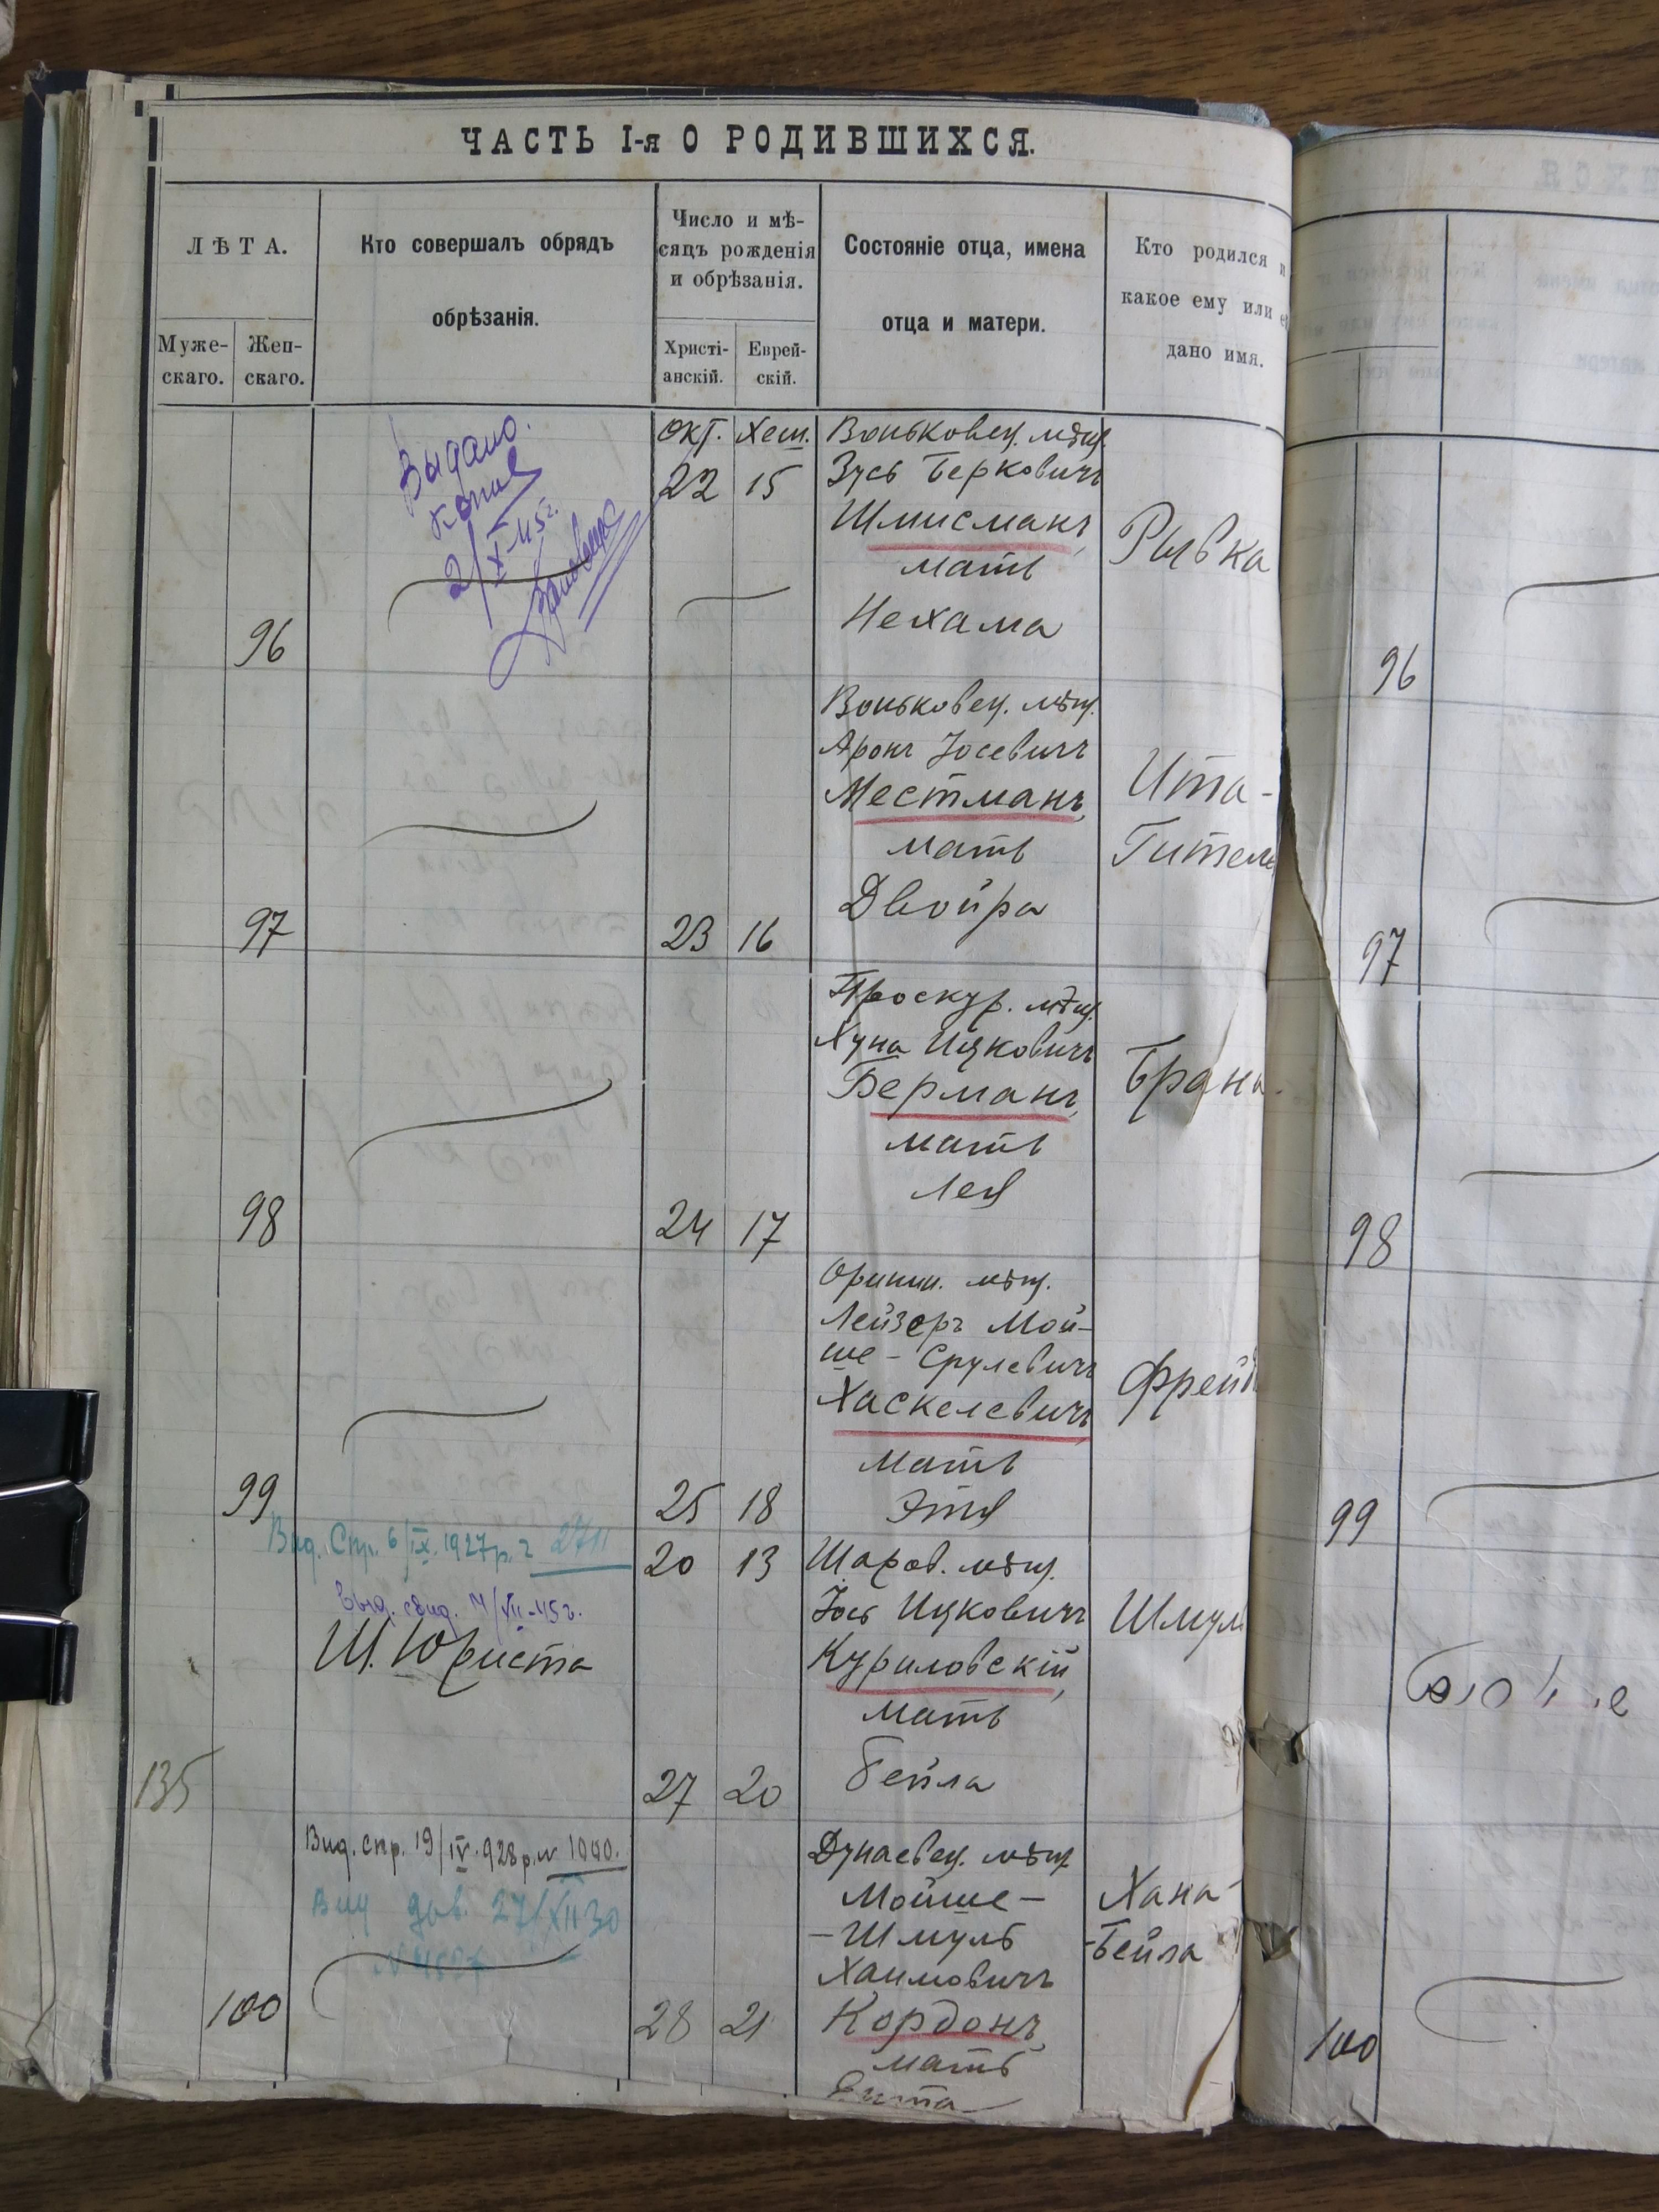 ЧАСТЬ I-я О РОДИВШИХСЯ.
ЛѢТА.
Муже-
скаго.
Жен-
скаго.
Кто совершалъ обрядъ
обрѣзанія.
Число и мѣ-
сяцъ рожденія
и обрѣзанія.
Христі-
анскій.
Еврей-
скій.
Состояніе отца, имена
отца и матери.
Кто родился и
какое ему или ей
дано имя.
96
Выдано
копие
2/X-45г.
Окт. Хеш.
22 15
Воньковец. мѣщ.
Зусь Берковичъ
Шмисманъ,
мать
Нехама
Рывка
96
97
23 16
Воньковец. мѣщ.
Аронъ Іосевичъ
Местманъ,
мать
Двойра
Ита-
Гитель
97
98
24 17
Проскур. мѣщ.
Хуна Ицковичъ
Берманъ,
мать
Лея
Брана
98
99
25 18
Оринин. мѣщ.
Лейзеръ Мой-
ше-Срулевичъ
Хаскелевичъ,
мать
Этя
Фрейд
99
Вид. Спр. 6/IX.1927р. 2711
Выд. свид. 4/VII-45г.
Ш. Юриста
135
20 13
27 20
Шаров. мѣщ.
Іось Ицковичъ
Куриловскій,
мать
Бейла
Шмуль
Вид. спр. 19/IV.928р. № 1000.
Вид дов. 27/XII 30
100
28 21
Дунаевец. мѣщ.
Мойше-
-Шмуль
Хаимовичъ
Кордонъ,
мать
Хана-
-Бейла
100